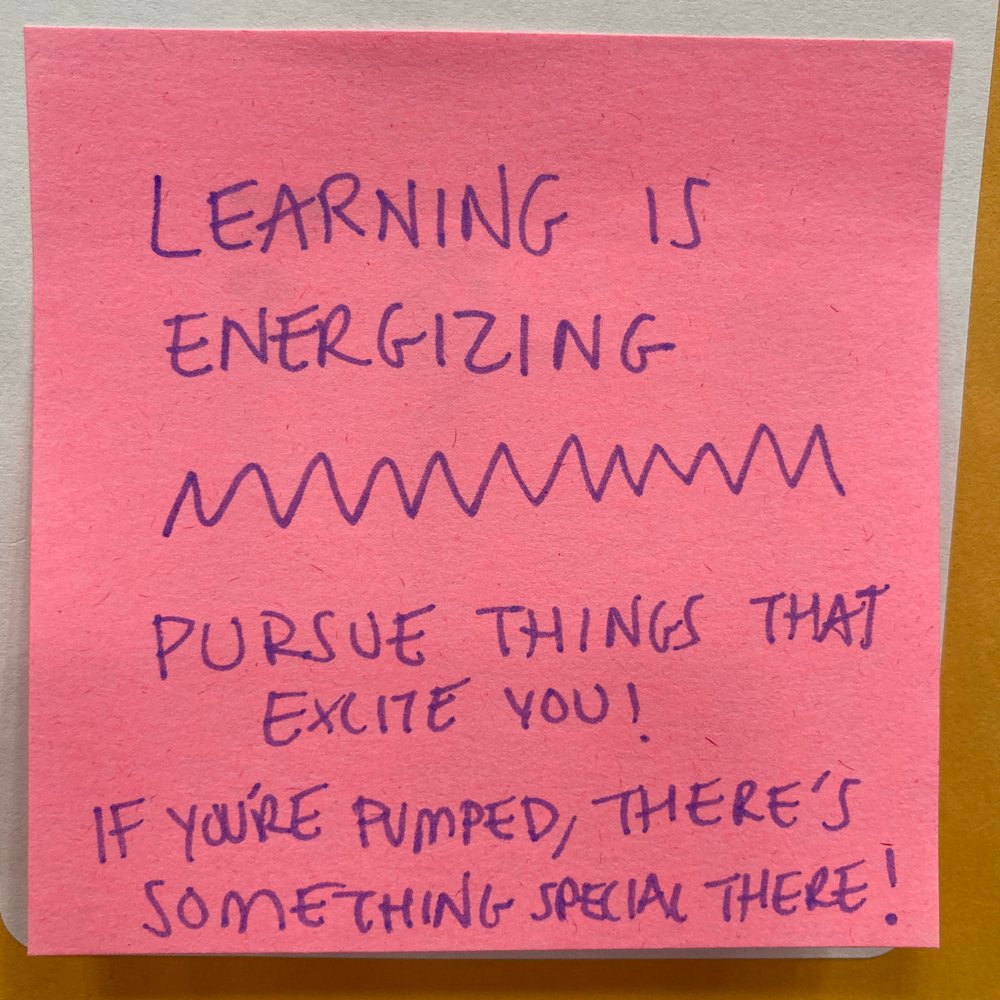 LEARNING IS
ENERGIZING
PURSUE THINGS THAT
EXCITE YOU!
IF YOU'RE PUMPED, THERE'S
SOMETHING SPECIAL THERE!